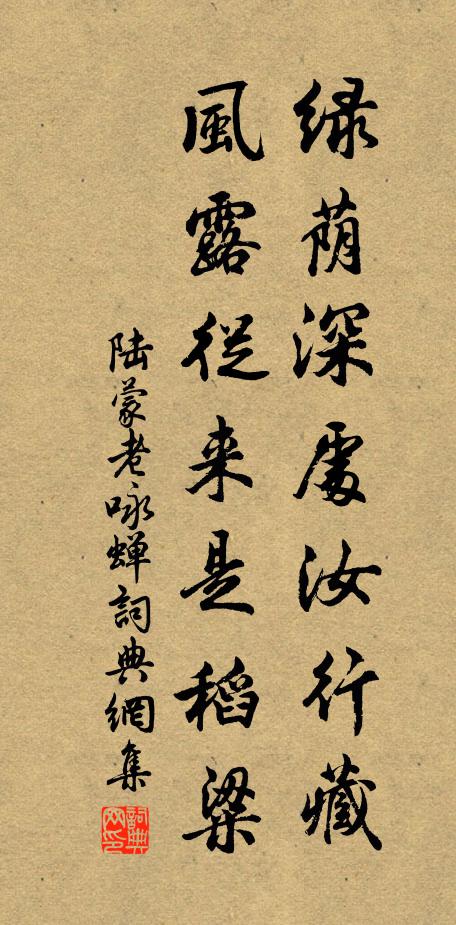 绿荫深處汝行藏
風露從来是稻粱
陆蒙老咏蝉詞典網集
詞典网印